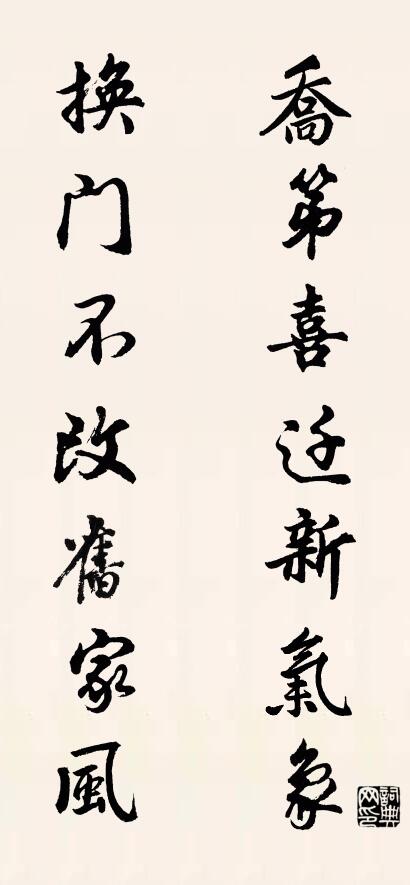 喬第喜迁新氣象
换门不改舊家風
詞典网印